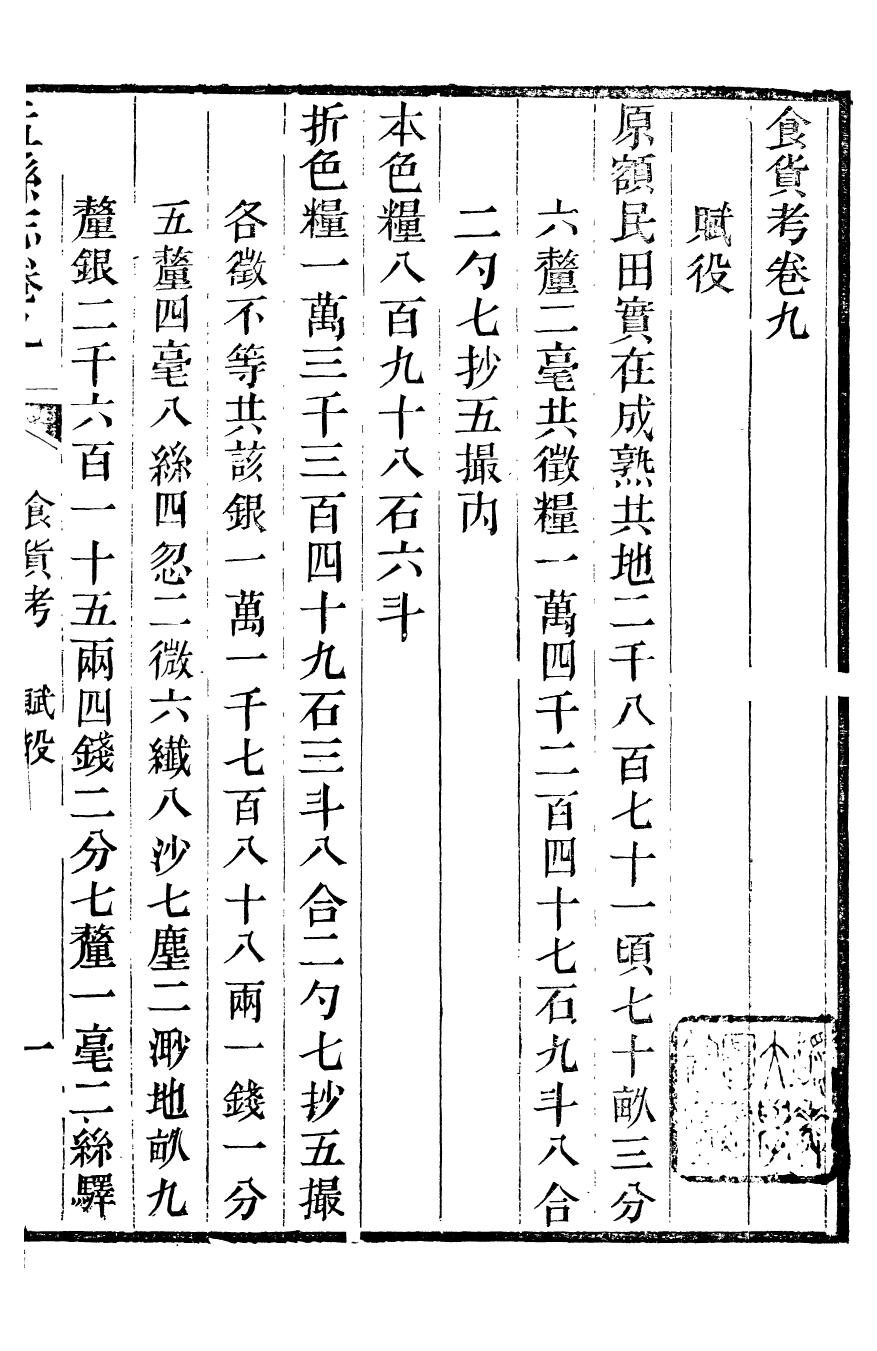 食貨考卷九
賦役
原額民田實在成熟共地二千八百七十一頃七十畝三分
六釐二毫共徵糧一萬四千二百四十七石九斗八合
二勺七抄五撮內
本色糧八百九十八石六斗
折色糧一萬三千三百四十九石三斗八合二勺七抄五撮
各徵不等共該銀一萬一千七百八十八兩一錢一分
五釐四毫八絲四忽二微六纖八沙七塵二渺地畝九
釐銀二千六百一十五兩四錢二分七釐一毫二絲驛
縣志卷 食貨考 賦役 一